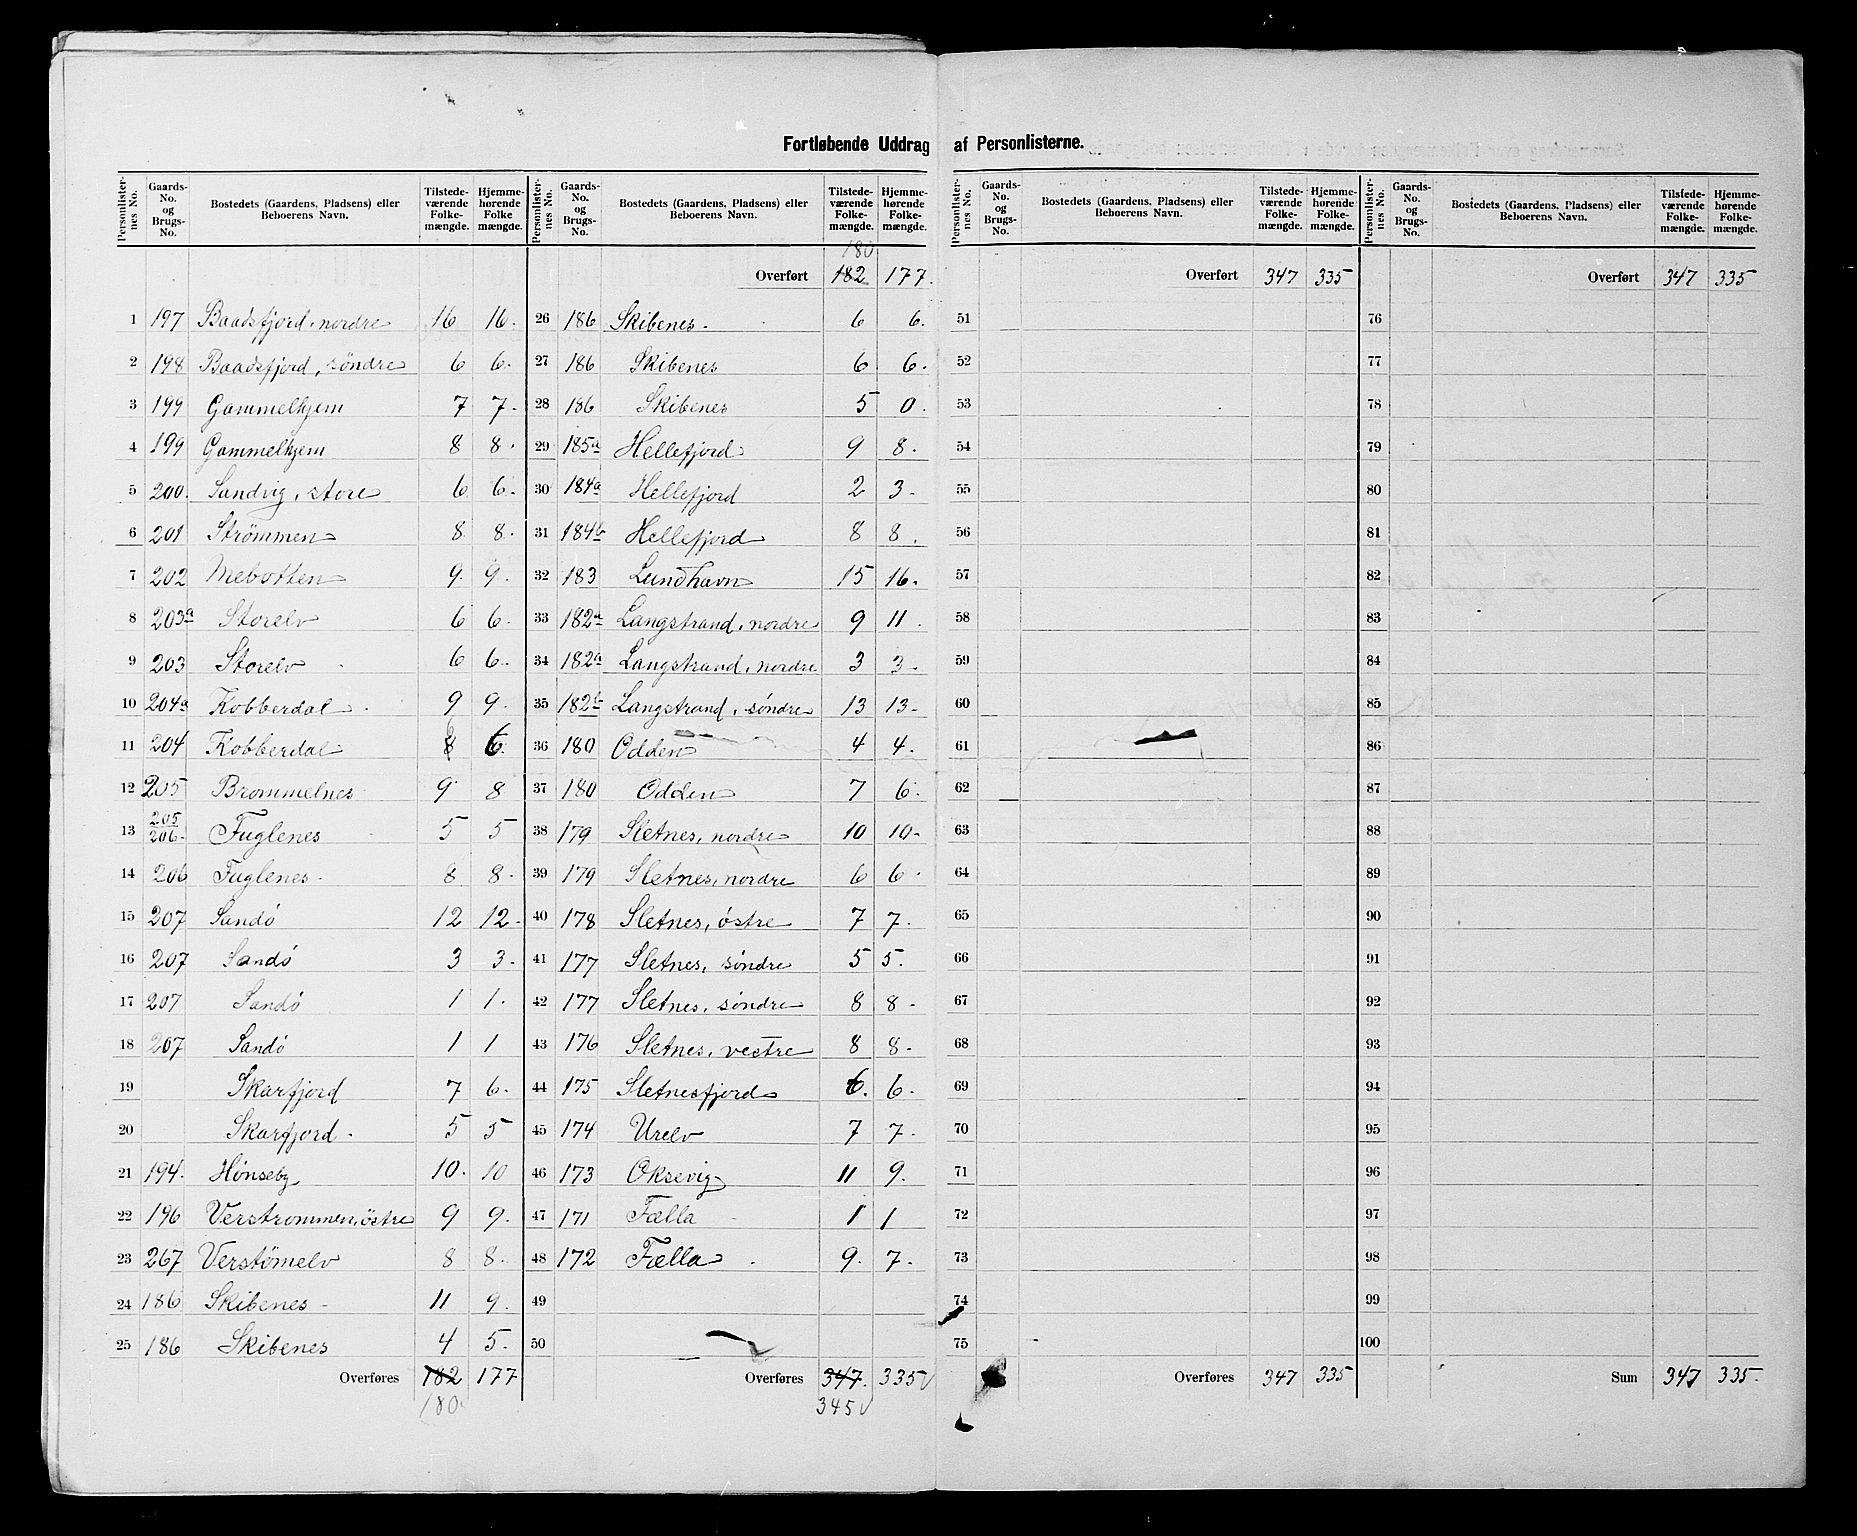 Fortløbende Uddrag af Personlisterne.
Personlister-nes No. | Gaards-No. og Brugs-No. | Bostedets (Gaardens, Pladsens) eller Beboerens Navn. | Tilstede-værende Folke-mængde. | Hjemme-hørende Folke mængde.
1 197 Baadsfjord, nordre 16 16.
2 198 Baadsfjord, søndre 6 6.
3 199 Gammelhjem 7 7.
4 199 Gammelhjem 8 8.
5 200. Sandvig, store 6 6.
6 201 Strømmen 8 8.
7 202 Mebotten 9 9.
8 203a Storelv 6 6.
9 203 Storelv 6 6.
10 204a Kobberdal 9 9.
11 204 Kobberdal 8 6 6
12 205 Brommelnes 9 8
13 205/206. Fuglenes 5 5
14 206 Fuglenes. 8 8.
15 207 Sandö 12 12.
16 207 Sandö 3 3.
17 207 Sandö 1 1.
18 207 Sandö 1 1
19 Skarfjord 7 6.
20 Skarfjord. 5 5
21 194. Hönseby 10. 10
22 196 Verstrommen, östre 9 9.
23 267 Verstømelv 8 8.
24 186 Skibenes 11 9.
25 186 Skibenes 4 5.
Overføres 182 177
180.
Personlister-nes No. | Gaards-No. og Brugs-No. | Bostedets (Gaardens, Pladsens) eller Beboerens Navn. | Tilstede-værende Folke-mængde. | Hjemme-hørende Folke-mængde.
180
Overført 182 177.
26 186 Skibenes. 6 6.
27 186 Skibenes 6 6.
28 186 Skibenes 5 0.
29 185a Hellefjord 9 8.
30 184a Hellefjord 2 3.
31 184b Hellefjord 8 8.
32 183 Lundhavn 15 16.
33 182a Langstrand, nordre 9 11.
34 182a Langstrand, nordre 3 3.
35 182b Langstrand, søndre 13 13.
36 180 Odden 4 4.
37 180 Odden 7 6.
38 179 Sletnes, nordre 10 10.
39 179 Sletnes, nordre 6 6.
40 178 Sletnes, östre 7 7.
41 177 Sletnes, søndre 5 5.
42 177 Sletnes, søndre 8 8.
43 176 Sletnes, vestre 8 8.
44 175 Sletnesfjord 6. 6.
45 174 Urelv 7 7.
46 173 Oksevig 11 9.
47 171 Fælla 1 1
48 172 Fælla 9. 7.
49
50
Overføres 347. 335 √
345 √
Personlister-nes No. | Gaards-No. og Brugs-No. | Bostedets (Gaardens, Pladsens) eller Beboerens Navn. | Tilstede-værende Folke-mængde. | Hjemme-hørende Folke-mængde.
Overført 347 335
51
52
53
54
55
56
57
58
59
60
61
62
63
64
65
66
67
68
69
70
71
72
73
74
75
Overføres 347 335
Personlister-nes No. | Gaards-No. og Brugs-No. | Bostedets (Gaardens, Pladsens) eller Beboerens Navn. | Tilstede-værende Folke-mængde. | Hjemme-hørende Folke-mængde.
Overført 347 335
76
77
78
79
80
81
82
83
84
85
86
87
88
89
90
91
92
93
94
95
96
97
98
99
100
Sum 347 335.